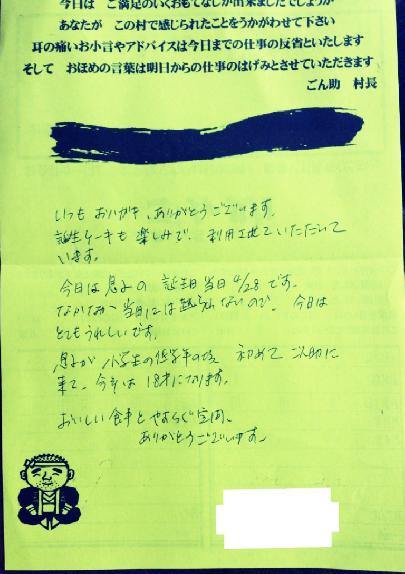 今日は ご満足のいくおもてなしが出来ましたでしょうか
あなたが この村で感じられたことをうかがわせて下さい
耳の痛いお小言やアドバイスは今日までの仕事の反省といたします
そして おほめの言葉は明日からの仕事のはげみとさせていただきます
ごん助 村長
いつも おハガキ、ありがとうございます。
誕生ケーキも楽しみで、利用させていただいて
います。
今日は息子の 誕生日当日 4/28 です。
なかなか 当日には来られないので、今日は
とてもうれしいです。
息子が 小学生の低学年の頃 初めて ごん助に
来て、今年は 18才になります。
おいしい食事と やすらぐ空間、
ありがとうございます。